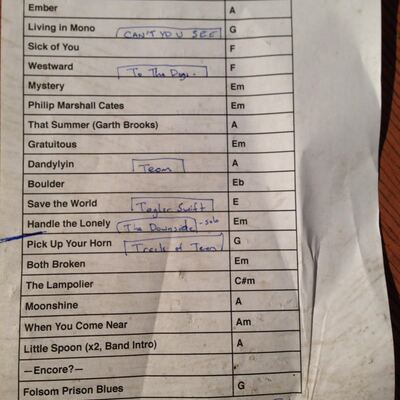 Ember A
Living in Mono CAN'T YOU SEE G
Sick of You F
Westward To The Dogs. F
Mystery Em
Philip Marshall Cates Em
That Summer (Garth Brooks) A
Gratuitous Em
Dandylyin Team A
Boulder Eb
Save the World Taylor Swift E
Handle the Lonely The Downside - solo Em
Pick Up Your Horn Track of Tears G
Both Broken Em
The Lampolier C#m
Moonshine A
When You Come Near Am
Little Spoon (x2, Band Intro) A
—Encore?—
Folsom Prison Blues G